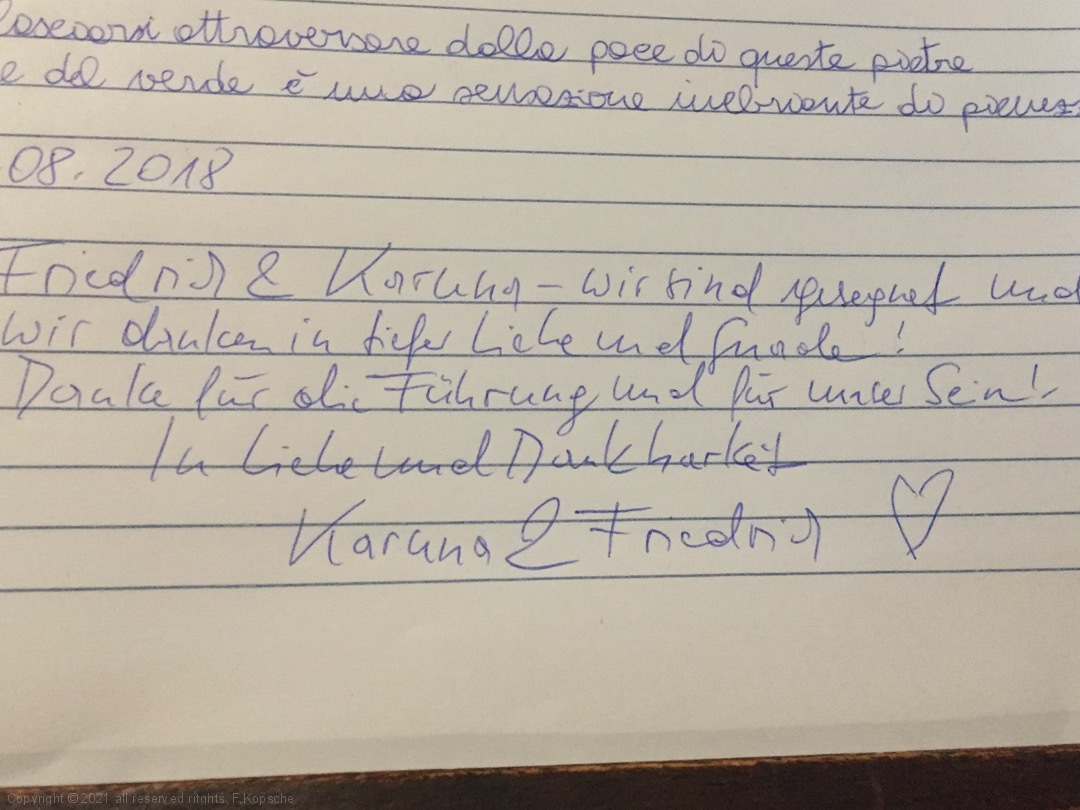 Lasciarsi attraversare dalla pace di queste pietre
e del verde è una sensazione inebriante di pienezz
08.2018
Friedrich & Karuna – wir sind gesegnet und
wir danken in tiefer Liebe und Gnade!
Danke für die Führung und für unser Sein!
In Liebe und Dankbarkeit
Karuna & Friedrich
Copyright © 2021 all reserved ritghts, F.Kopsche